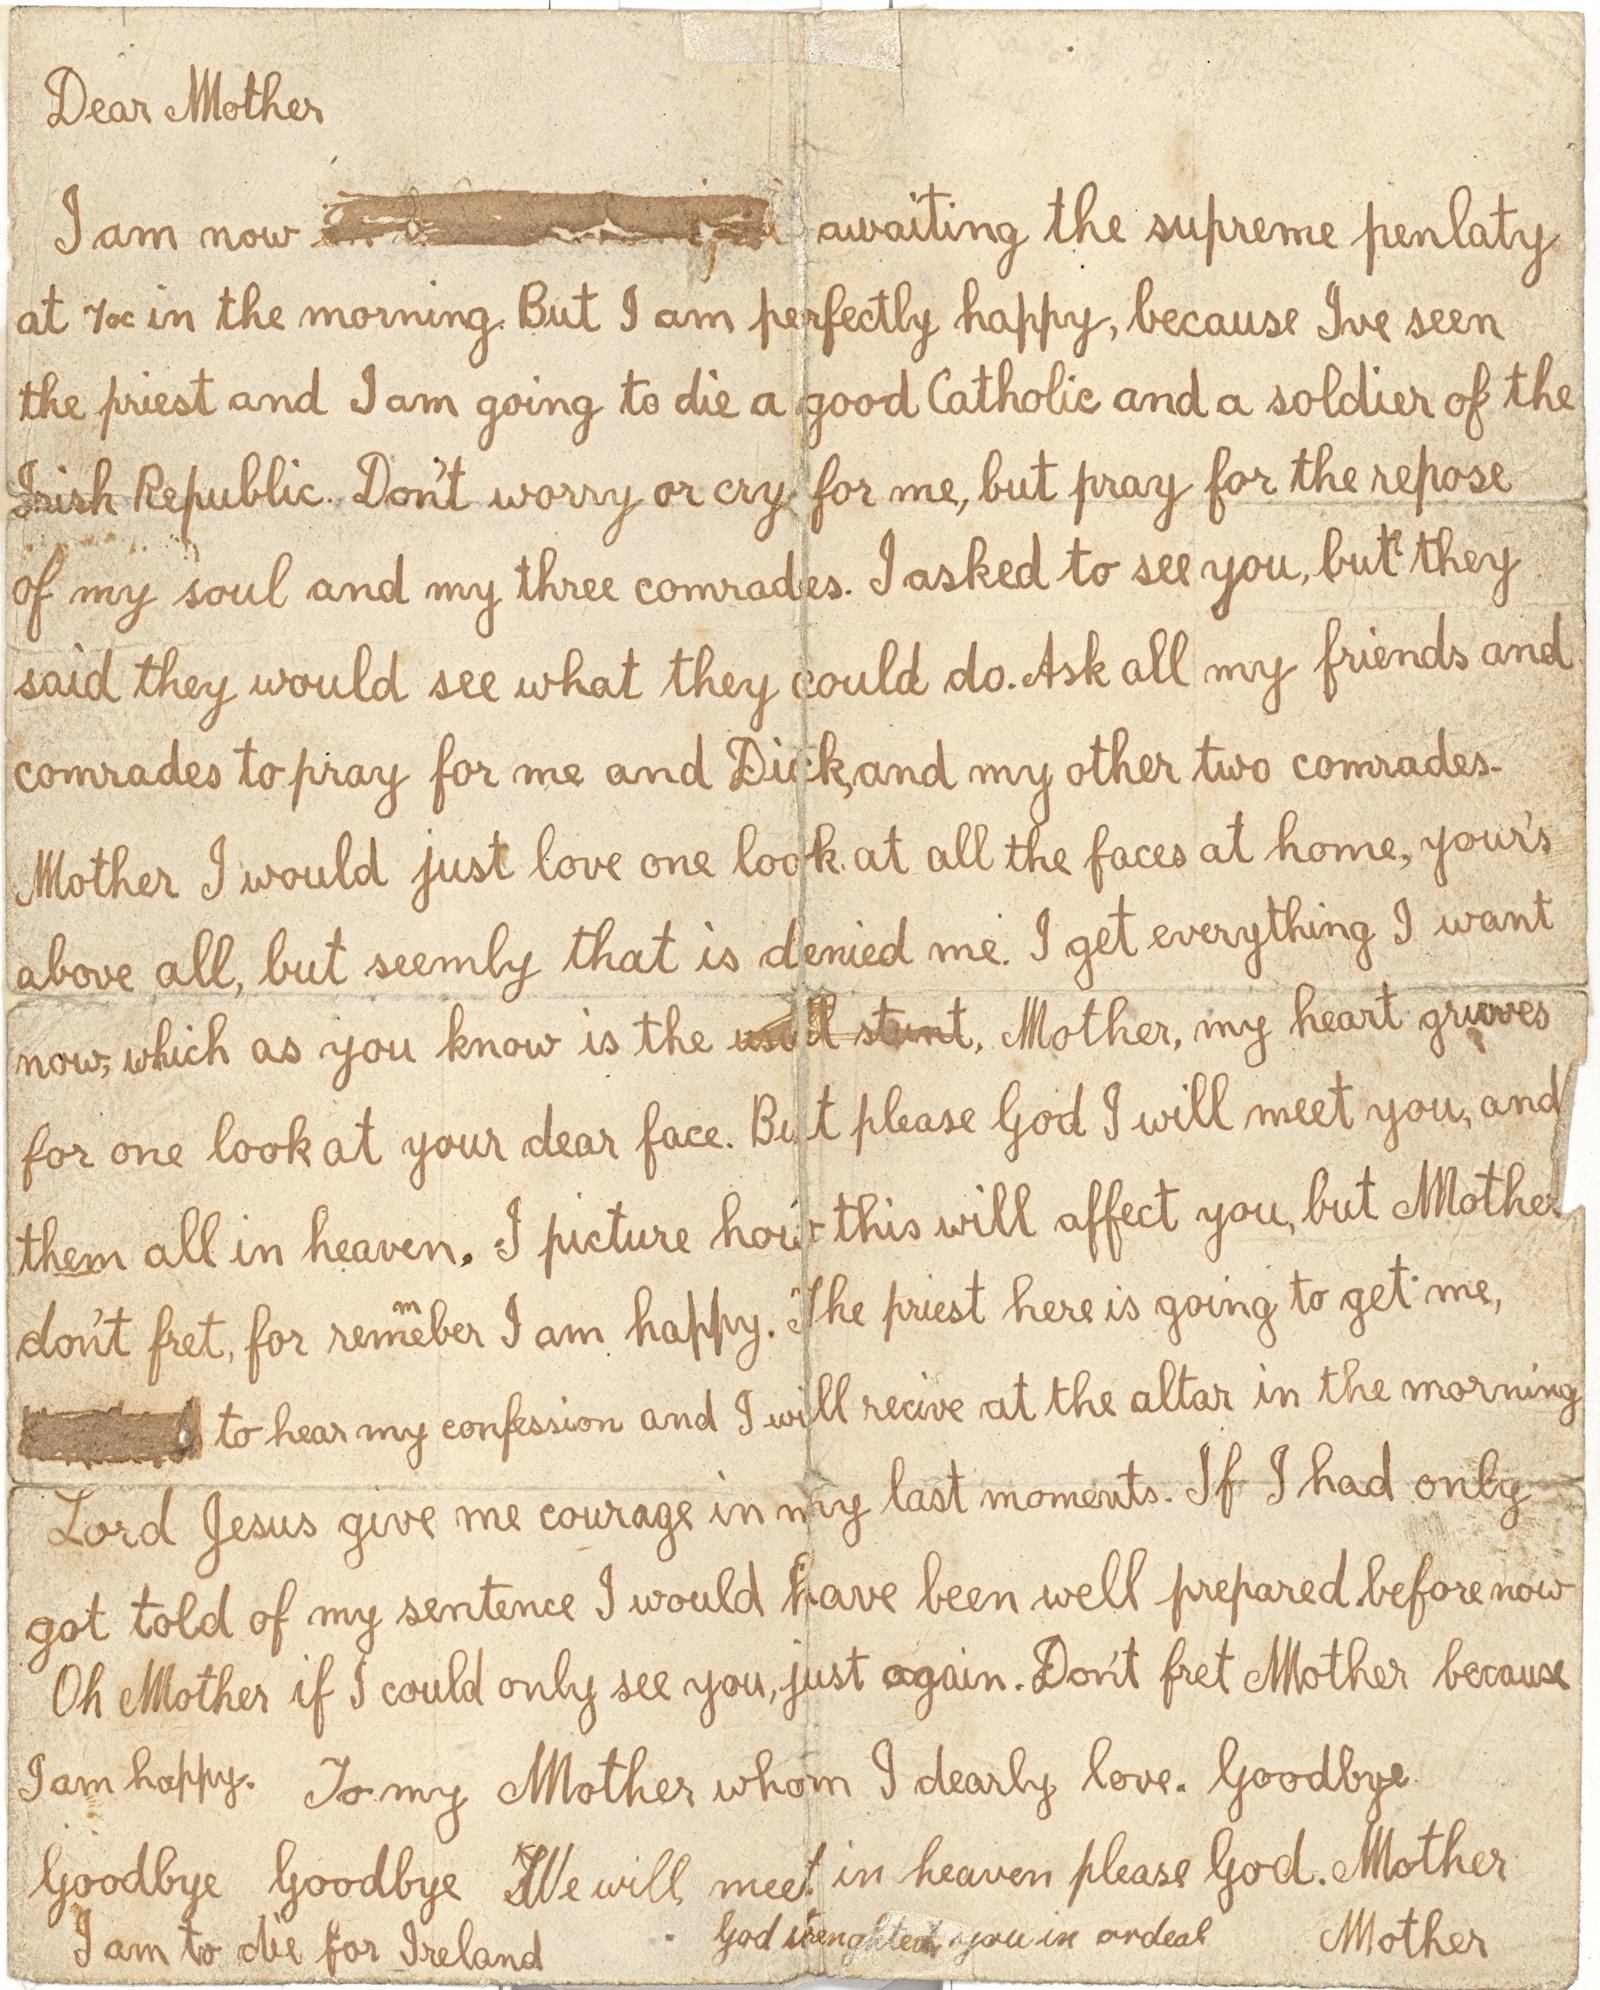 Dear Mother
I am now awaiting the supreme penlaty
at in the morning. But I am perfectly happy, because I've seen
the priest and I am going to die a good Catholic and a soldier of the
Irish Republic. Don't worry or cry for me, but pray for the repose
of my soul and my three comrades. I asked to see you, but they
said they would see what they could do. Ask all my friends and
comrades to pray for me and Dick, and my other two comrades.
Mother I would just love one look at all the faces at home, your's
above all, but seemly that is denied me. I get everything I want
now, which as you know is the usual stunt. Mother, my heart grieves
for one look at your dear face. But please God I will meet you, and
them all in heaven. I picture how this will affect you, but Mother
don't fret, for remember I am happy. The priest here is going to get me,
to hear my confession and I will recive at the altar in the morning
Lord Jesus give me courage in my last moments. If I had only
got told of my sentence I would have been well prepared before now
Oh Mother if I could only see you, just again. Don't fret Mother because
I am happy. To my Mother whom I dearly love. Goodbye
Goodbye Goodbye We will meet in heaven please God. Mother
I am to die for Ireland God you in ordeal Mother